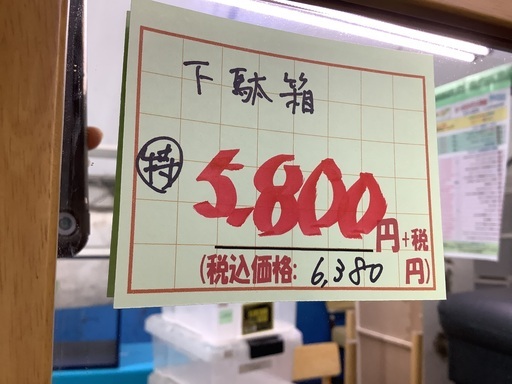 下駄箱
特 5,800円+税
(税込価格: 6,380 円)